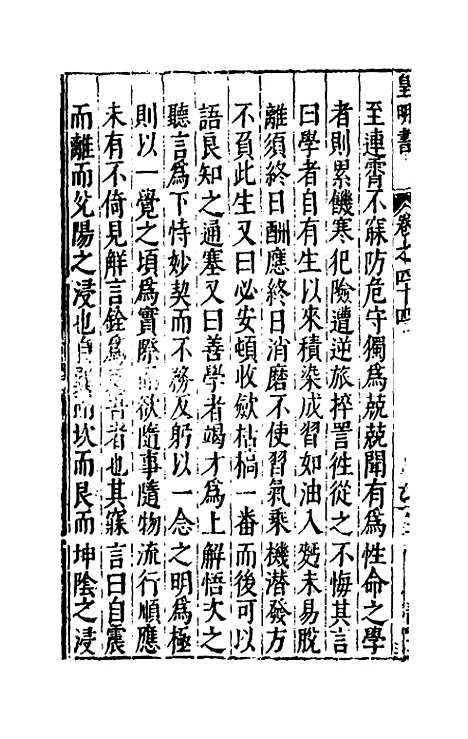 皇明書
卷之四十四
至連霄不寐防危守獨為兢兢聞有為性命之學
者則累饑寒犯險遭逆旅捽詈徃從之不悔其言
曰學者自有生以來積染成習如油入麫未易脫
離須終日酬應終日消磨不使習氣乘機潛發方
不負此生又曰必安頓收歛枯槁一番而後可以
語良知之通塞又曰善學者竭才為上解悟次之
聽言為下恃妙契而不務反躬以一念之明為極
則以一覺之頃為實際 欲隨事隨物流行順應
未有不倚見解言銓為 者也其寐言曰自震
而離而兌陽之浸也自巽而坎而艮而坤陰之浸